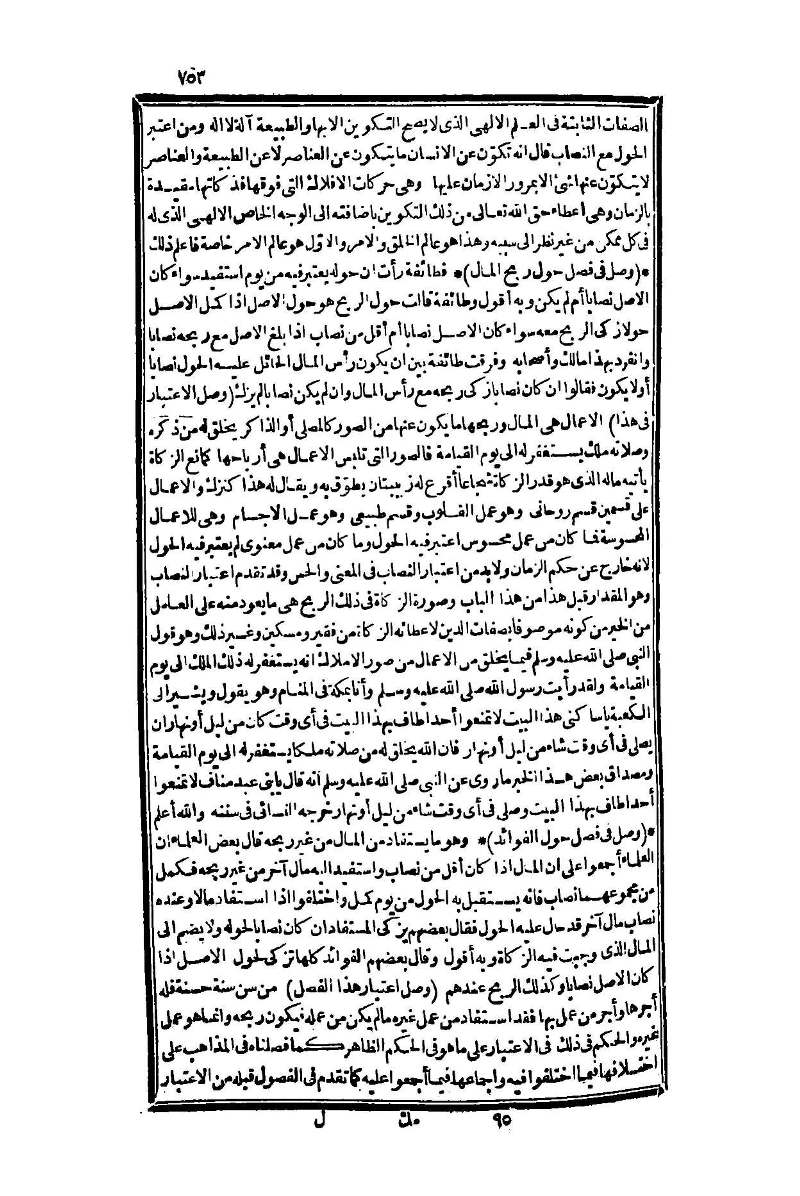 ٧٥٣
الصفات الثابتة فى العلم الالهى الذى لا يصح التكوين الا بها والطبيعة آلة لا اله ومن اعتبر
الحول مع النصاب قال انه تكوّن عن الانسان ما يتكون عن العناصر لا عن الطبيعة والعناصر
لا يتكوّن عنها شئ الا بمرور الازمان عليها وهى حركات الافلاك التى فوقها فذكاتها مقيدة
بالزمان وهى أعطاء حق الله تعالى من ذلك التكوين باضافته الى الوجه الخاص الالهى الذى له
فى كل ممكن من غير نظر الى سببه وهذا هو عالم الخلق والامر والاوّل هو عالم الامر خاصة فاعلم ذلك
*(وصل فى فصل حول ربح المال)* فطائفة رأت ان حوله يعتبر فيه من يوم استفيد سواء كان
الاصل نصابا أم لم يكن وبه أقول وطائفة قالت حول الربح هو حول الاصل اذا كمل الاصل
حولا زكى الربح معه سواء كان الاصل نصابا أم أقل من نصاب اذا بلغ الاصل مع ربحه نصابا
وانفرد بهذا مالك وأصحابه وفرقت طائفة بين ان يكون رأس المال الحائل عليه الحول نصابا
أو لا يكون فقالوا ان كان نصابا زكى ربحه مع رأس المال وان لم يكن نصابا لم يزك (وصل الاعتبار
فى هذا) الاعمال هى المال وربحها ما يكون عنها من الصور كالمصلى أو الذاكر يخلق له من ذكره
وصلاته ملك يستغفر له الى يوم القيامة فالصور التى تلبس الاعمال هى أرباحها كمانع الزكاة
يأتيه ماله الذى هو قدر الزكاة شجاعا أقرع له زبيبتان يطوّق به ويقال له هذا كنزك والاعمال
على قسمين قسم روحانى وهو عمل القلوب وقسم طبيعى وهو عمل الاجسام وهى للاعمال
المحسوسة فما كان من عمل محسوس اعتبر فيه الحول وما كان من عمل معنوى لم يعتبر فيه الحول
لانه خارج عن حكم الزمان ولا بد من اعتبار النصاب فى المعنى والحس وقد تقدم اعتبار النصاب
وهو المقدار قبل هذا من هذا الباب وصورة الزكاة فى ذلك الربح هى ما يعود منه على العامل
من الخير من كونه موصوفا بصفات الدين لاعطائه الزكاة من فقير ومسكين وغير ذلك وهو قول
النبى صلى الله عليه وسلم فيما يخلق من الاعمال من صور الاملاك انه يستغفر له ذلك الملك الى يوم
القيامة ولقد رأيت رسول الله صلى الله عليه وسلم وأنا بمكة فى المنام وهو يقول ويشير الى
الكعبة يا ساكنى هذا البيت لا تمنعوا أحدا طاف بهذا البيت فى أى وقت كان من ليل أو نهار ان
يصلى فى أى وقت شاء من ليل أو نهار فان الله يخلق له من صلاته ملكا يستغفر له الى يوم القيامة
ومصداق بعض هذا الخبر ما روى عن النبى صلى الله عليه وسلم انه قال يا بنى عبد مناف لا تمنعوا
أحدا طاف بهذا البيت وصلى فى أى وقت شاء من ليل أو نهار خرجه النسائى فى سننه والله أعلم
*(وصل فى فصل حول الفوائد)* وهو ما يستفاد من المال من غير ربحه قال بعض العلماء ان
العلماء أجمعوا على ان المال اذا كان أقل من نصاب واستفيد اليه مال آخر من غير ربحه فكمل
من مجموعهما نصاب فانه يستقبل به الحول من يوم كمل واختلفوا اذا استفاد مالا وعنده
نصاب مال آخر قد حال عليه الحول فقال بعضهم يزكى المستفاد ان كان نصابا لحوله ولا يضم الى
المال الذى وجبت فيه الزكاة وبه أقول وقال بعضهم الفوائد كلها تزكى لحول الاصل اذا
كان الاصل نصابا وكذلك الربح عندهم (وصل اعتبار هذا الفصل) من سن سنة حسنة فله
أجرها وأجر من عمل بها فقد استفاد من عمل غيره ما لم يكن من عمله فيكون ربحه وانما هو عمل
غيره والحكم فى ذلك فى الاعتبار على ما هو فى الحكم الظاهر كما فصلناه فى المذاهب على
اختلافها فيما اختلفوا فيه واجماعها فيما أجمعوا عليه كما تقدم فى الفصول قبله من الاعتبار
٩٥ مك ل